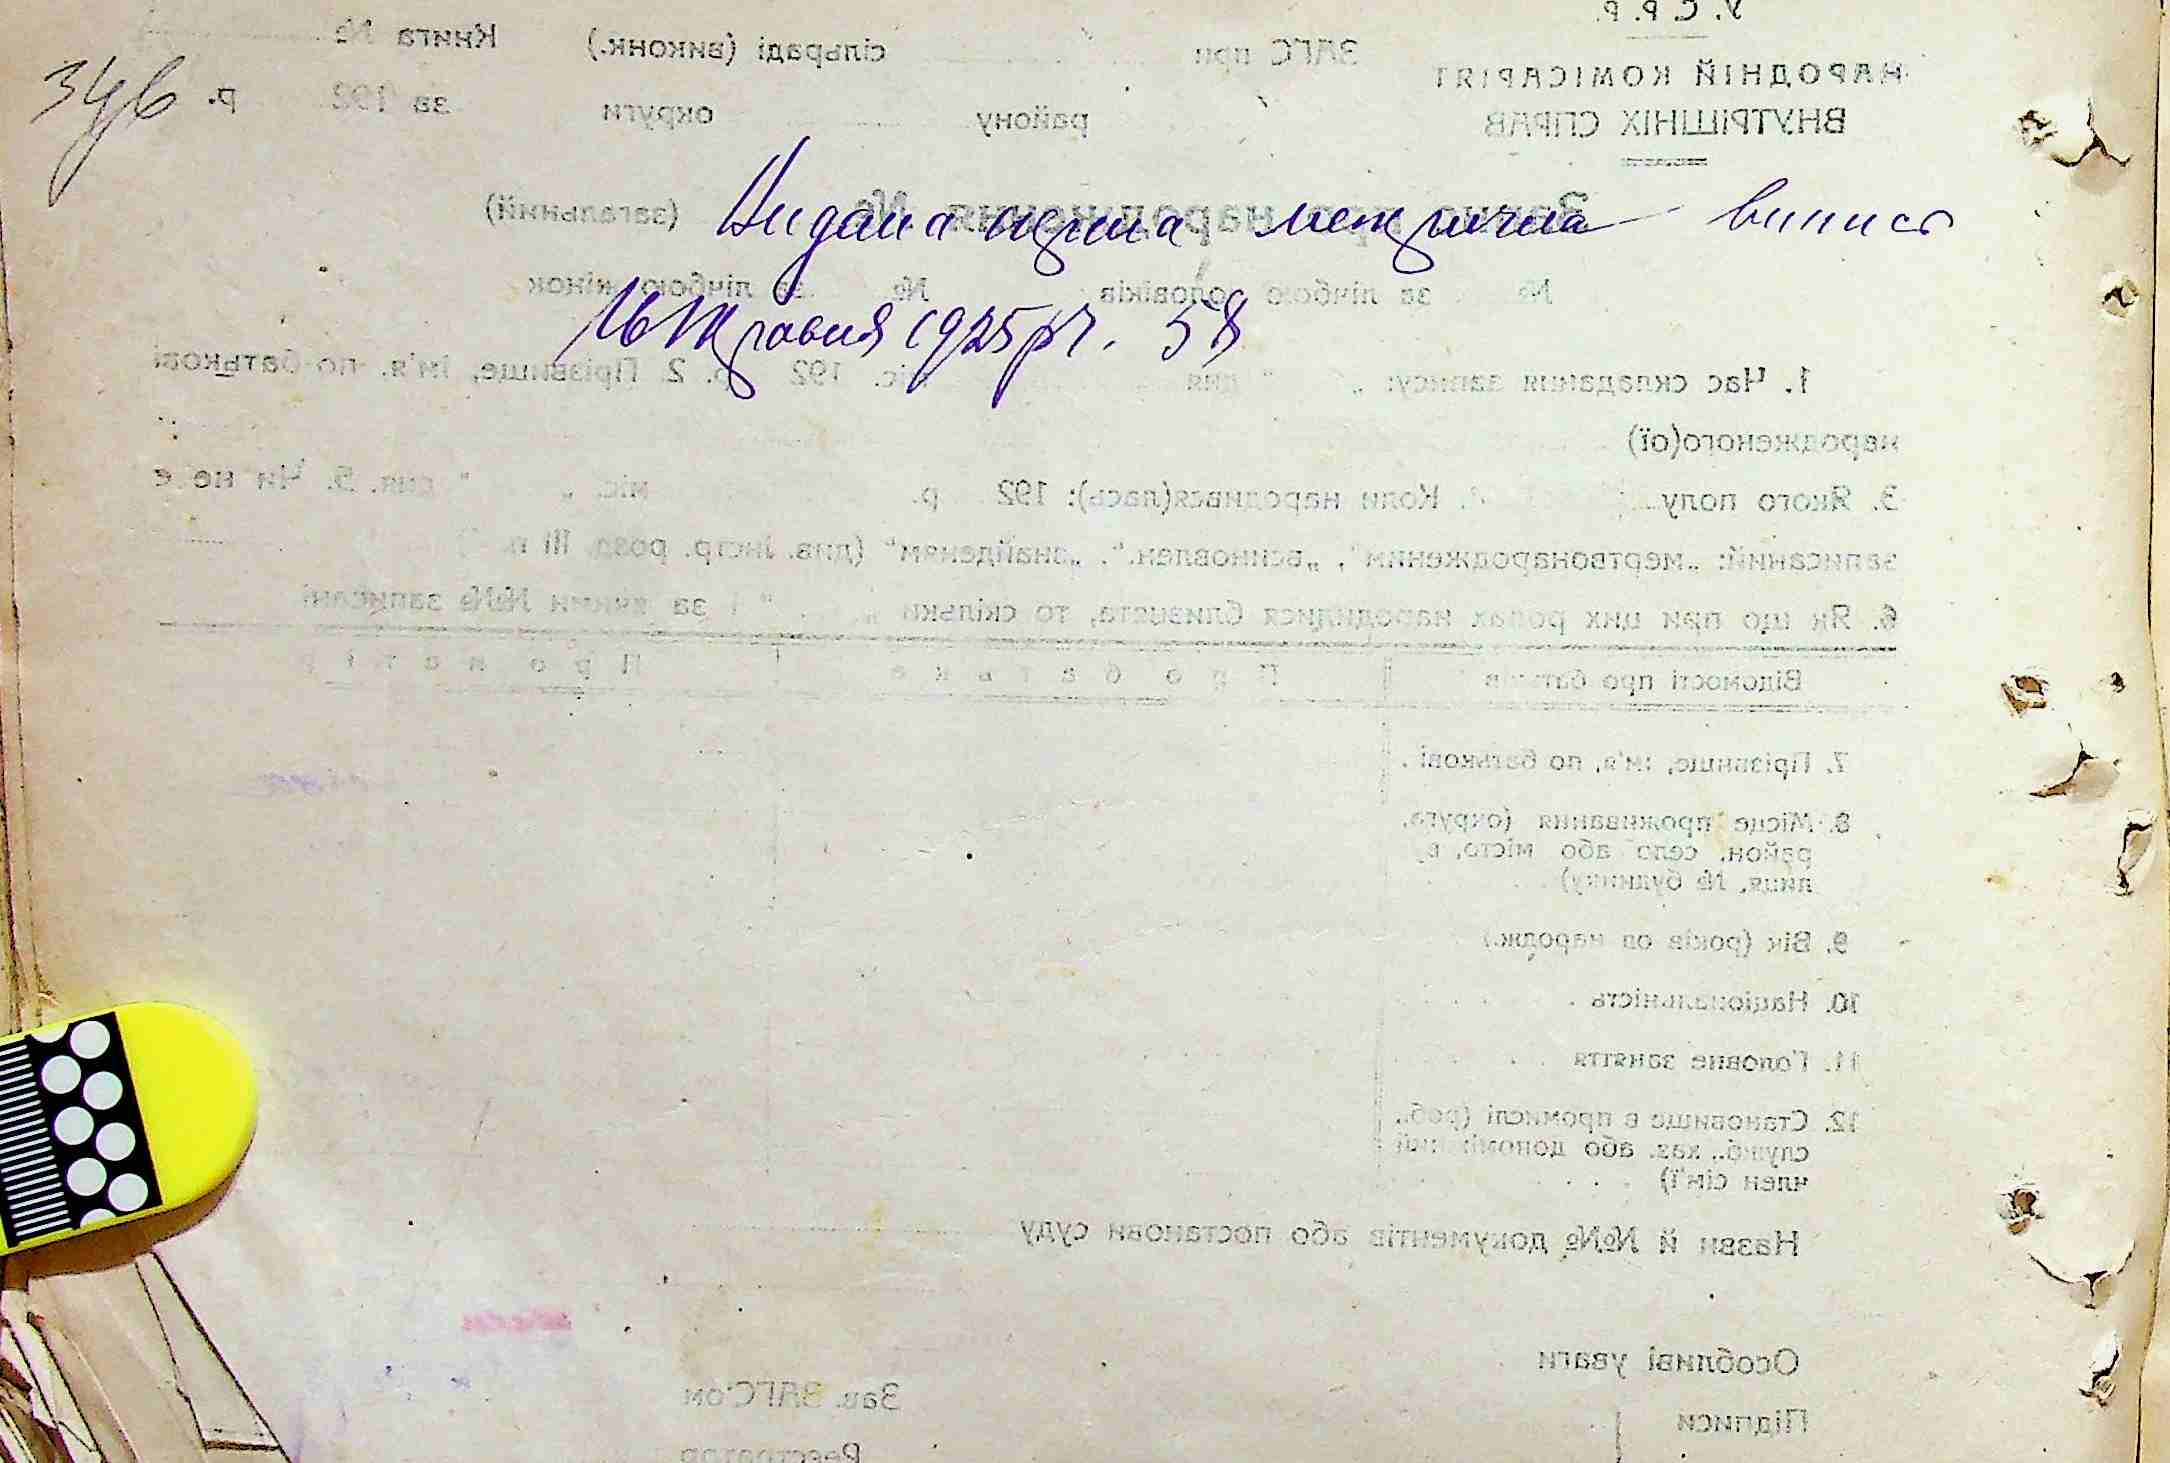 У. С. Р. Р.
НАРОДНІЙ КОМІСАРІЯТ
ВНУТРІШНІХ СПРАВ
ЗАГС при сільраді (виконк.) Книга №
району округи за 192 р.
34б
Запис про народження № (загальний)
Видана метрична випись
№ за лічбою чоловіків № за лічбою жінок
16 травня 1925 р. 58
1. Час складання запису: „ “ дня міс. 192 р. 2. Прізвище, ім'я, по-батькові
народженого(ої)
3. Якого полу 4. Коли народився(лась): 192 р. міс. „ “ дня. 5. Чи не є
записаний: „мертвонародженим“, „всиновлен.“, „знайденям“ (див. інстр. розд. III п.
6. Як що при цих родах народилися близнята, то скільки „ “ і за якими №№ записані
Відомості про батьків Про батьке Про матір
7. Прізвище, ім'я, по батькові
8. Місце проживання (округа,
район, село або місто, ву
лиця, № будинку)
9. Вік (років од народж.)
10. Національність
11. Головне заняття
12. Становище в промислі (роб.,
служб., хаз. або допоміжний
член сім'ї)
Назви й №№ документів або постанови суду
Особливі уваги
Підписи Зав. ЗАГС'ом
Реєстратор